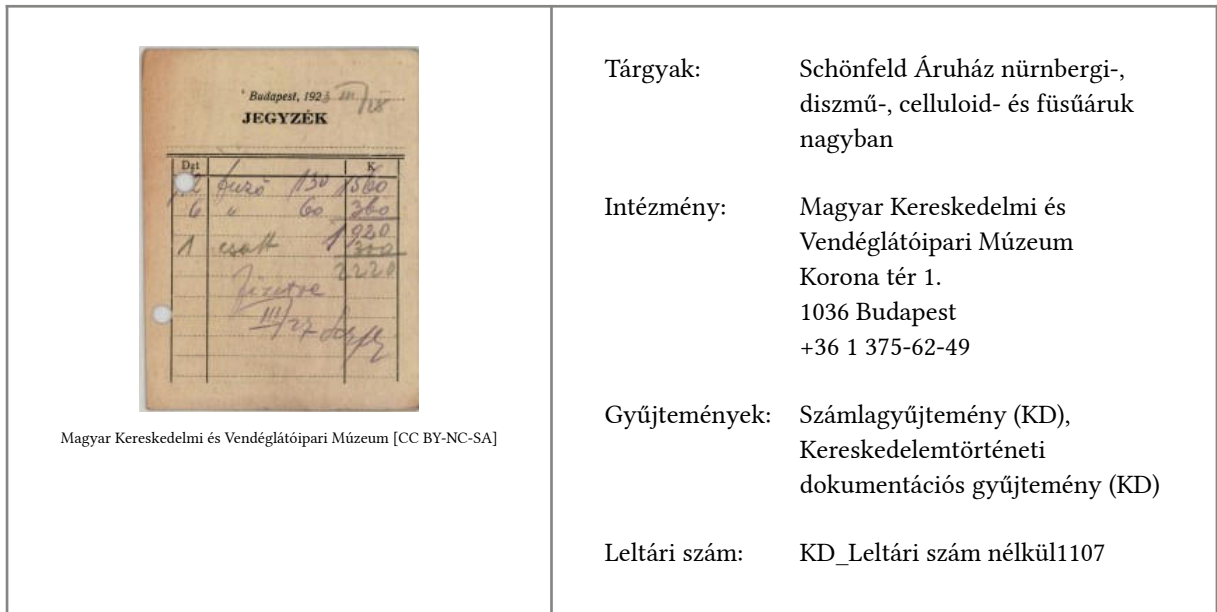 Budapest, 1923 III/18
JEGYZÉK
Dst K
12 fuzó 130 1560
6 " 60 360
1920
1 csatt 300
2220
Fizetve
III/27
Magyar Kereskedelmi és Vendéglátóipari Múzeum [CC BY-NC-SA]
Tárgyak: Schönfeld Áruház nürnbergi-,
diszmű-, celluloid- és füsűáruk
nagyban
Intézmény: Magyar Kereskedelmi és
Vendéglátóipari Múzeum
Korona tér 1.
1036 Budapest
+36 1 375-62-49
Gyűjtemények: Számlagyűjtemény (KD),
Kereskedelemtörténeti
dokumentációs gyűjtemény (KD)
Leltári szám: KD_Leltári szám nélkül1107